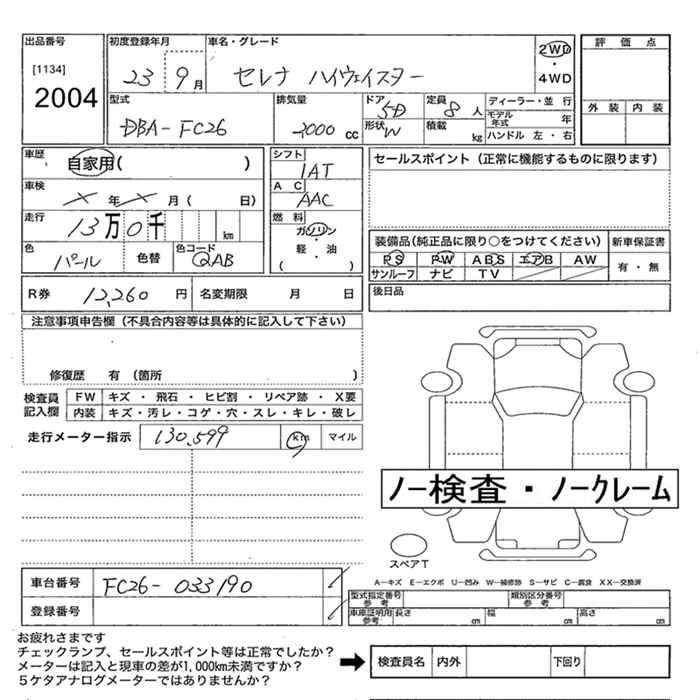 出品番号
[1134]
2004
初度登録年月
23 9月
車名・グレード
セレナ ハイウェイスター
2WD
・
4WD
評価点
外装 内装
型式
DBA-FC26
排気量
2000 cc
ドア
5D
形状
W
定員
8 人
積載
kg
ディーラー・並行
モデル年式 年
ハンドル 左・右
車歴
自家用( )
車検
× 年 × 月( 日)
走行
13万0千 km
色
パール
色替
色コード
QAB
シフト
IAT
AC
AAC
燃料
ガソリン
軽・油
( )
セールスポイント(正常に機能するものに限ります)
装備品(純正品に限り○をつけてください)
PS PW ABS エアB AW
サンルーフ ナビ TV
新車保証書
有・無
後日品
R券 12,260 円
名変期限 月 日
注意事項申告欄(不具合内容等は具体的に記入して下さい)
修復歴 有(箇所 )
検査員記入欄
FW キズ・飛石・ヒビ割・リペア跡・X要
内装 キズ・汚レ・コゲ・穴・スレ・キレ・破レ
走行メーター指示 130,599 km マイル
ノー検査・ノークレーム
スペアT
A−キズ E−エクボ U−凹み W−補修跡 S−サビ C−腐食 XX−交換済
車台番号 FC26-033190
登録番号
型式指定番号 参考
類別区分番号 参考
車庫証明用 参考 長さ cm 幅 cm 高さ cm
お疲れさまです
チェックランプ、セールスポイント等は正常でしたか?
メーターは記入と現車の差が1,000km未満ですか?
5ケタアナログメーターではありませんか?
検査員名 内外 下回り